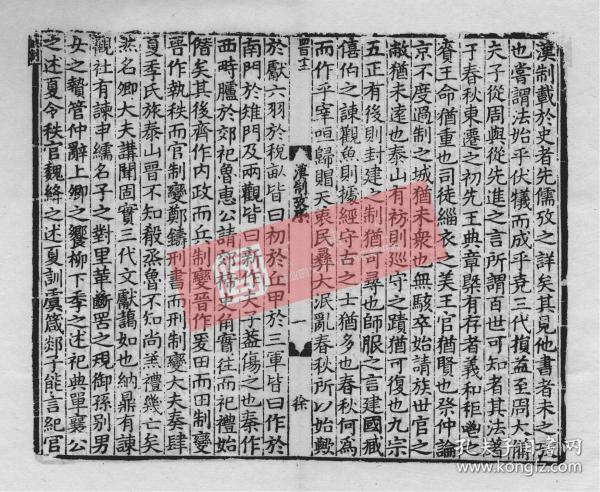 漢制載於史者先儒攷之詳矣其見他書者未之
也嘗謂法始乎伏犧而成乎堯三代損益至周大備
夫子從周與從先進之言所謂百世可知者其法著
于春秋東遷之初先王典章㮣有存者義和秬鬯
賚王命猶重也司徒緇衣之美王官猶賢也祭仲論
京不度過制之城猶未衆也無駭卒始請族世官之
敝猶未遠也泰山有祊則廵守之蹟猶可復也九宗
五正有後則封建之制猶可尋也師服之言建國臧
僖伯之諫觀魚則據經守古之士猶多也春秋何爲
而作乎宰咺歸賵天衷民彝大泯亂春秋所以始歟
漢制攷序
一
徐
於獻六羽於稅畝皆曰初於丘甲於三軍皆曰作於
南門於雉門及兩觀皆曰新夫子蓋傷之也秦作
西畤臚於郊祀魯惠公請郊廟史角實往而祀禮始
僭矣其後齊作内政而丘制變晉作爰田而田制變
晉作執秩而官制變鄭鑄刑書而刑制變大夫奏肆
夏季氏旅泰山晉不知殽烝魯不知尚羔禮幾亡矣
然名卿大夫講聞固實三代文獻藹如也納鼎有諫
觀社有諫申繻名子之對里革斷罟之規御孫別男
女之贄管仲辭上卿之饗柳下季之述祀典單襄公
之述夏令秩官魏絳之述夏訓虞箴郯子能言紀官
孔夫子旧书网
www.kongfz.com